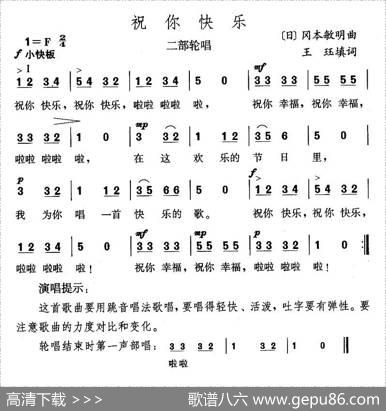 祝你快乐
1=F 2/4
二部轮唱
〔日〕冈本敏明曲
王 珏填词
f 小快板
> I > mf
1 2 3 4 | 5 4 3 4 | 1 2 3 4 | 5 0 | 3 3 3 3 | 5 5 3 3 |
祝你 快乐，祝你 快乐，啦啦 啦啦 啦， 祝你 幸福，祝你 幸福，
mp
3 3 3 2 | 1 0 | 3 5 | 3 2 3 2 | 1 2 3 4 | 5 0 |
啦啦 啦啦 啦， 在 这 欢 乐的 节 日 里，
p f
3 3 2 | 1 2 3 4 | 3 5 3 2 | 1 0 | 1 2 3 4 | 5 4 3 4 |
我 为你 唱 一首 快 乐的 歌。 祝你 快乐，祝你 快乐，
mf mp p
1 2 3 4 | 5 0 | 3 3 3 3 | 5 5 5 5 | 3 3 3 2 | 1 0
啦啦 啦啦 啦！ 祝你 幸福，祝你 幸福，啦啦 啦啦 啦！
演唱提示：
这首歌曲要用跳音唱法歌唱，要唱得轻快、活泼，吐字要有弹性。要
注意歌曲的力度对比和变化。
轮唱结束时第一声部唱：3 3 3 2 | 1 0 | 1 0 | 1 0
啦啦
高清下载 >>>
歌谱八六 www.gepu86.com